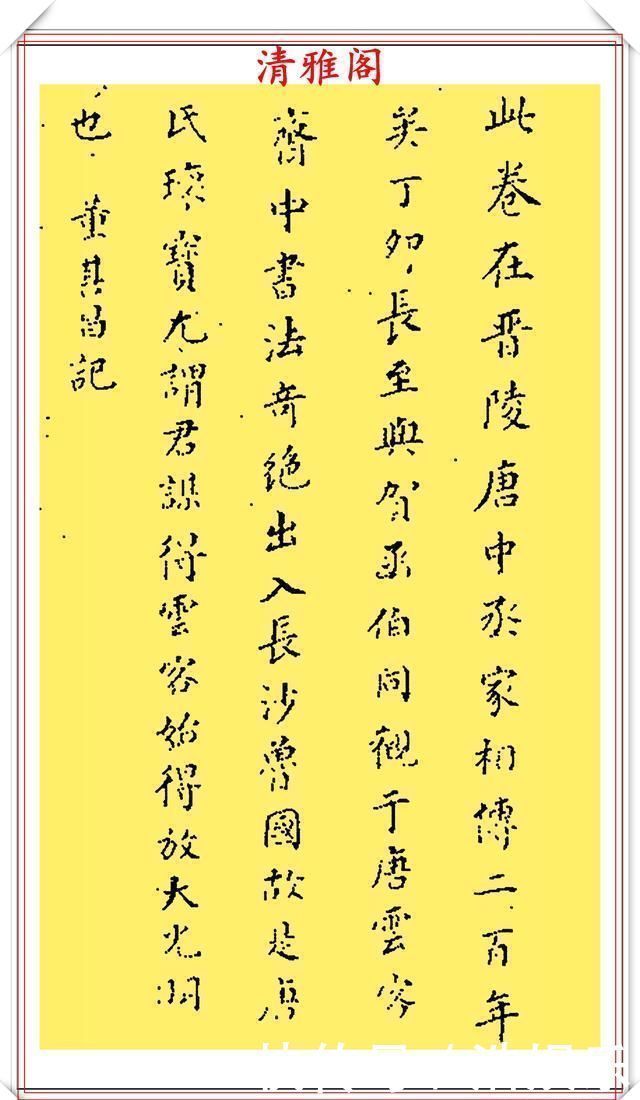 清雅阁
此卷在晉陵唐中丞家相傳二百年
矣丁卯長至與賀函伯同觀于唐雲客
齋中書法奇絕出入長沙魯國故是唐
氏瓌寶尤謂君謀得雲客始得放大光明
也 董其昌記